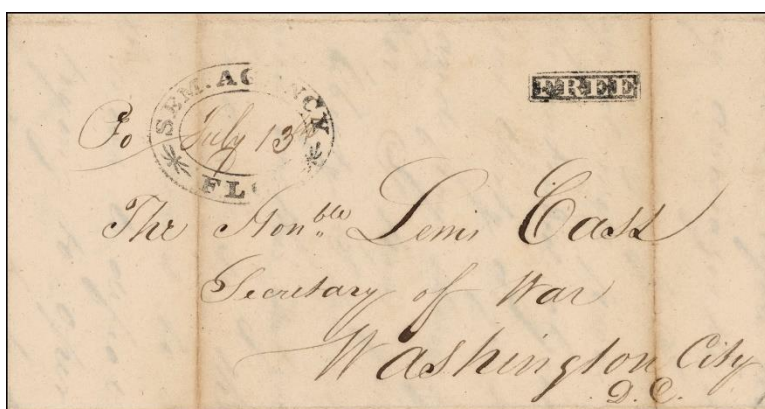 SEM. AGENCY
FLO.
July 13th
FREE
To
The Honble Lewis Cass
Secretary of War
Washington City
D.C.